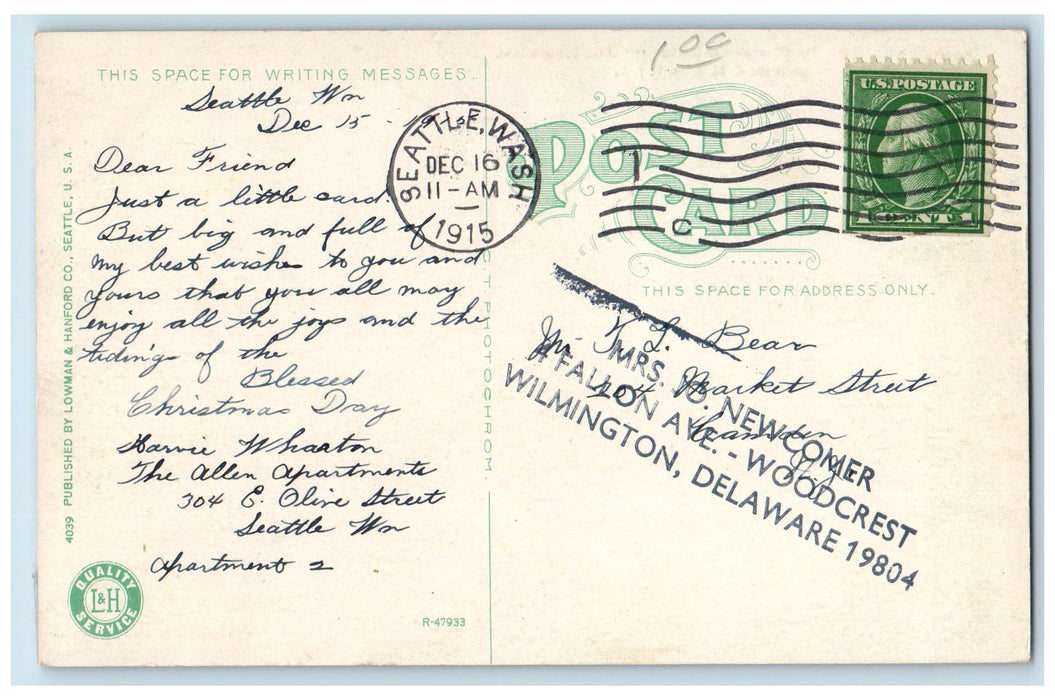 THIS SPACE FOR WRITING MESSAGES.
Seattle Wn
Dec 15 - 19
Dear Friend
Just a little card.
But big and full of
my best wishes to you and
yours that you all may
enjoy all the joys and the
tidings of the
Blessed
Christmas Day
Harvie Wharton
The Allen Apartments
304 E. Olive Street
Seattle Wn
Apartment 2
4039 PUBLISHED BY LOWMAN & HANFORD CO., SEATTLE, U. S. A.
QUALITY
L&H
SERVICE
R-47933
C. T. PHOTOCHROM.
1 00
SEATTLE, WASH
DEC 16
11-AM
1915
1
C
POST
CARD
U.S. POSTAGE
1 CENTS 1
THIS SPACE FOR ADDRESS ONLY.
L. Bear
Market Street
Camden
N.J.
MRS. JO. NEWCOMER
FALLON AVE. - WOODCREST
WILMINGTON, DELAWARE 19804